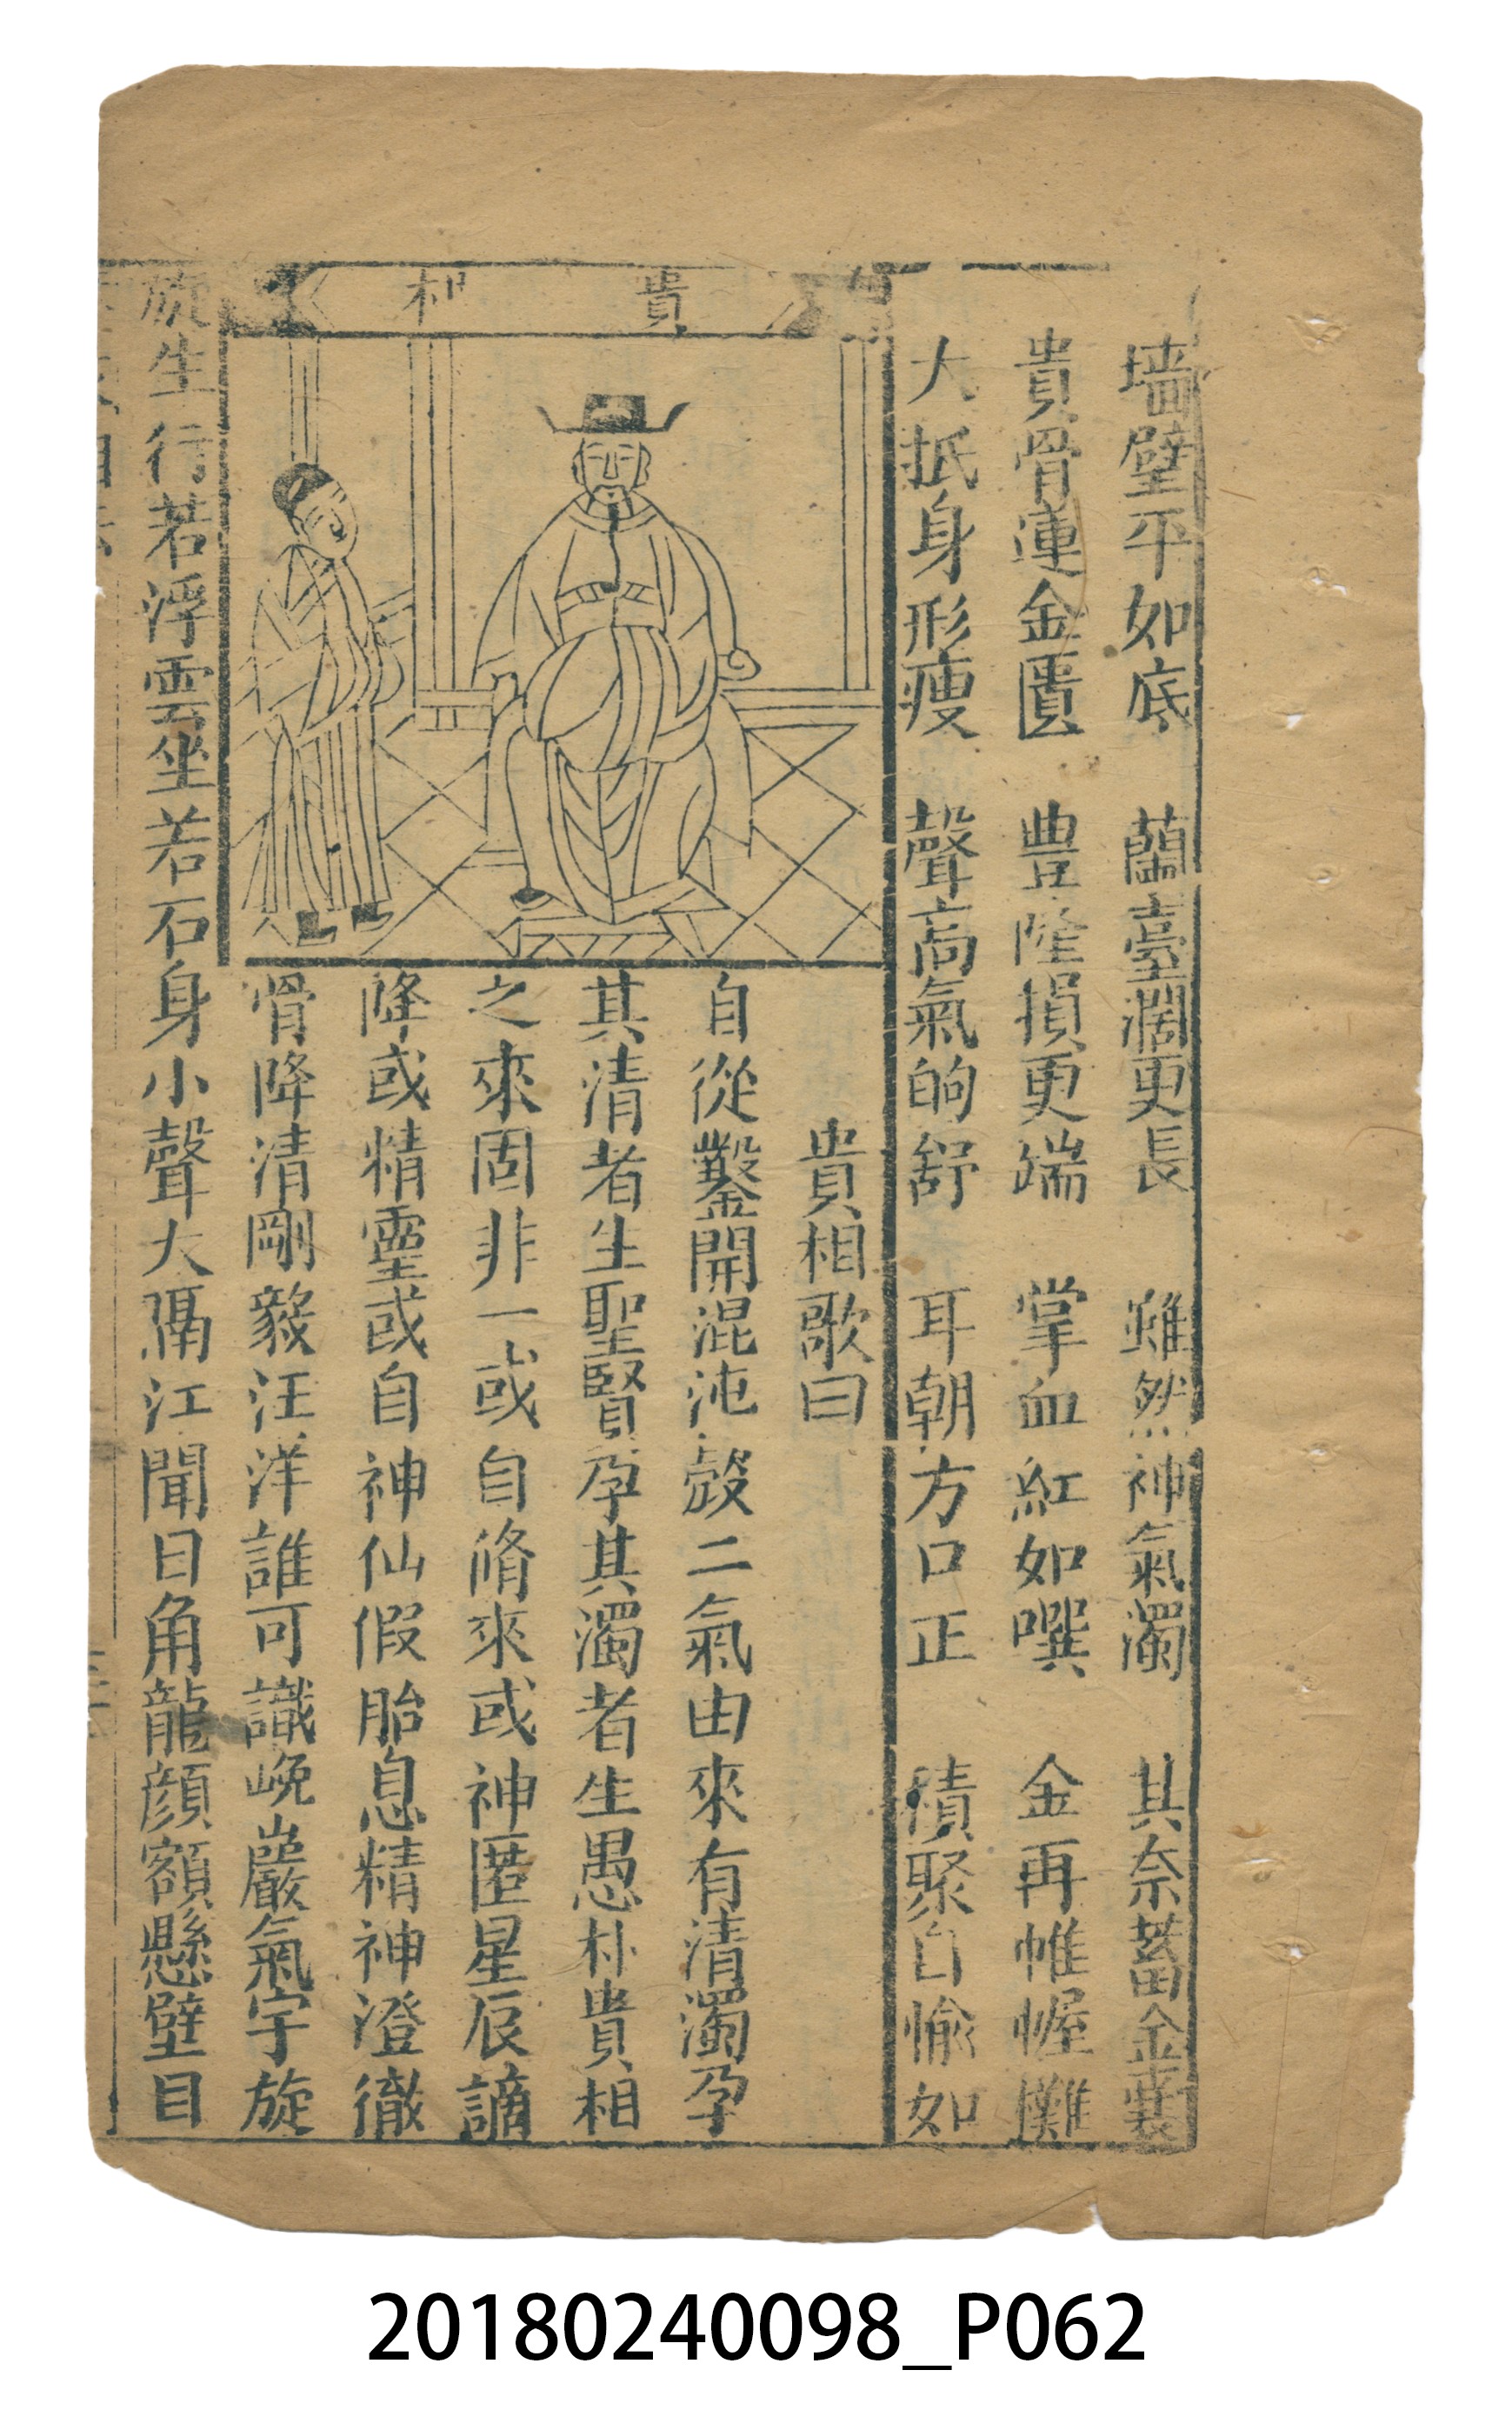 墻壁平如底　蘭臺濶更長　雖然神氣濁　其奈蓄金裳
貴骨連金匱　豊隆損更端　掌血紅如噀　金再帷幄㒧
大抵身形瘦　聲高氣的舒　耳朝方口正　積聚自愉如
貴相
貴相歌曰
自從鑿開混沌殼二氣由來有清濁孕
其清者生聖賢孕其濁者生愚朴貴相
之來固非一或自脩來或神匿星辰謫
降或精靈或自神仙假胎息精神澄徹
骨降清剛毅汪洋誰可識㟅巖氣宇旋
旋生行若浮雲坐若石身小聲大隔江聞日角龍顏額懸壁目
20180240098_P062